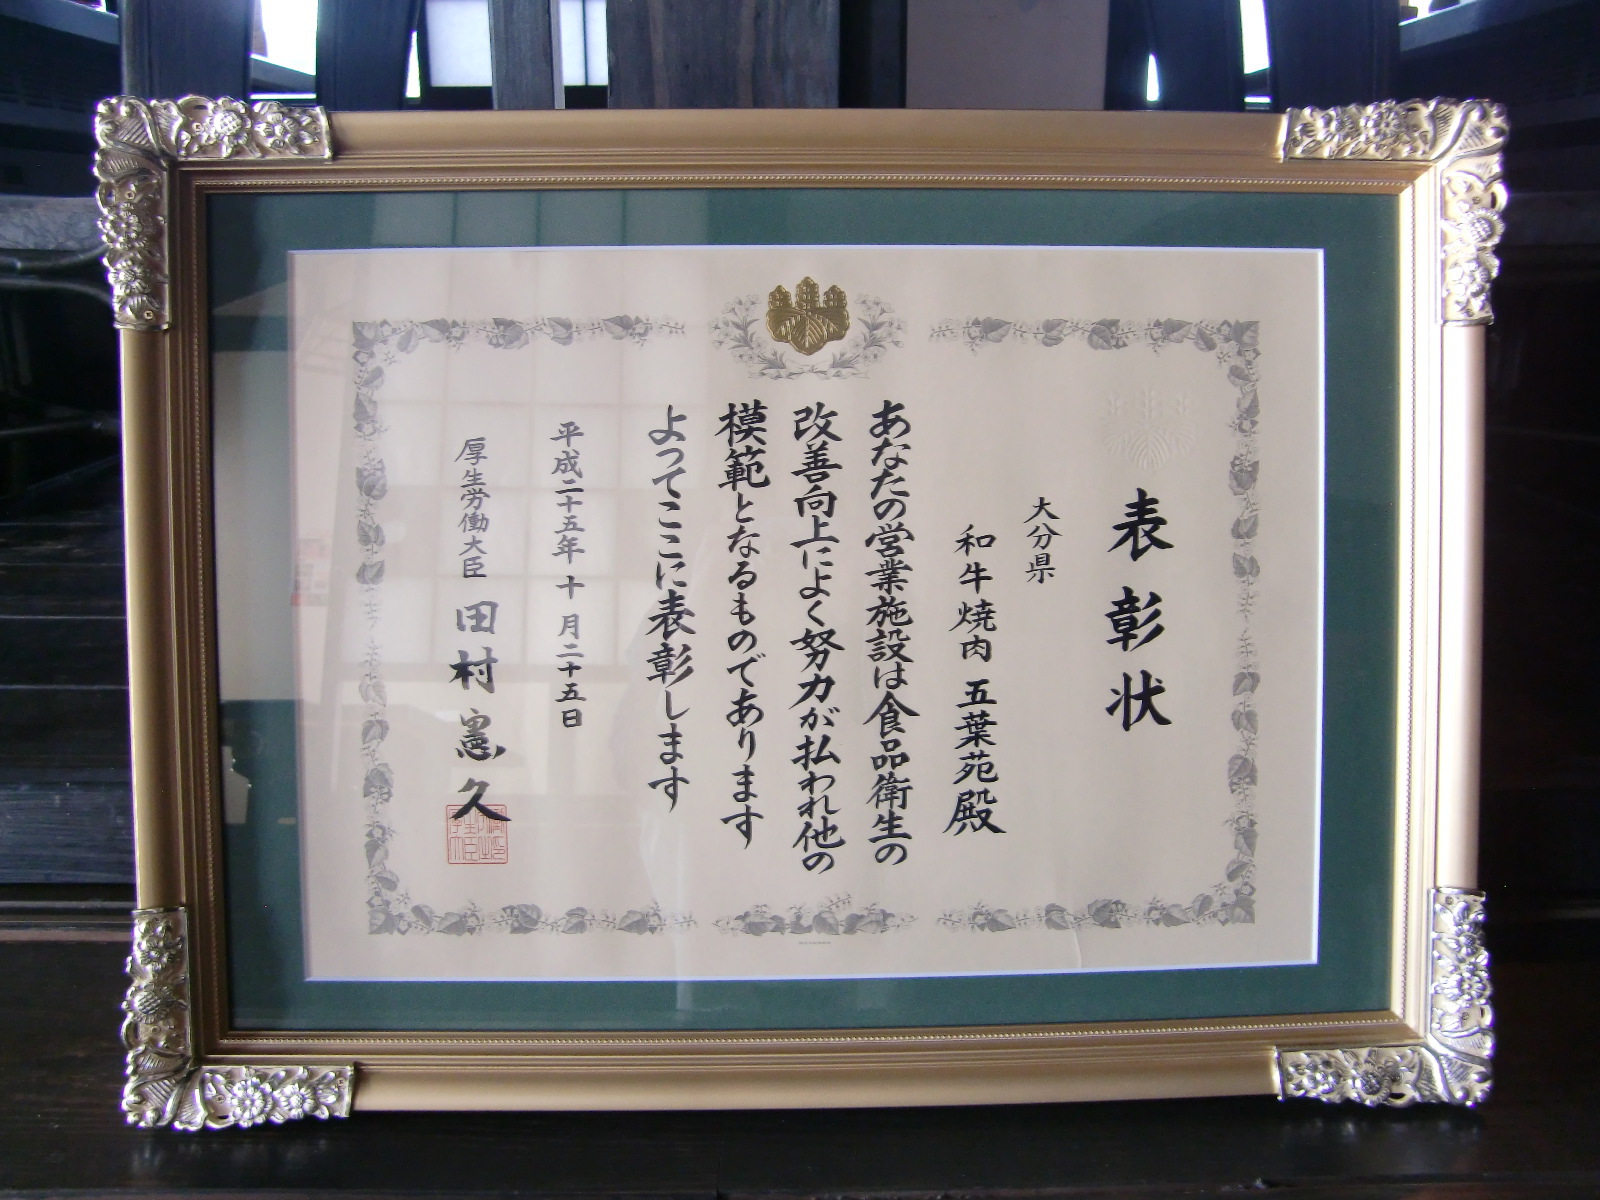 表彰状
大分県
和牛焼肉 五葉苑殿
あなたの営業施設は食品衛生の
改善向上によく努力が払われ他の
模範となるものであります
よってここに表彰します
平成二十五年十月二十五日
厚生労働大臣 田村憲久